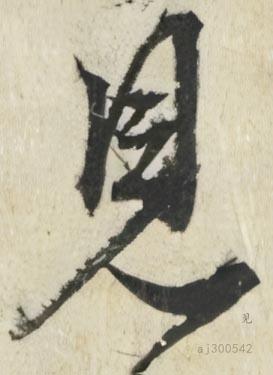 見
見
aj300542